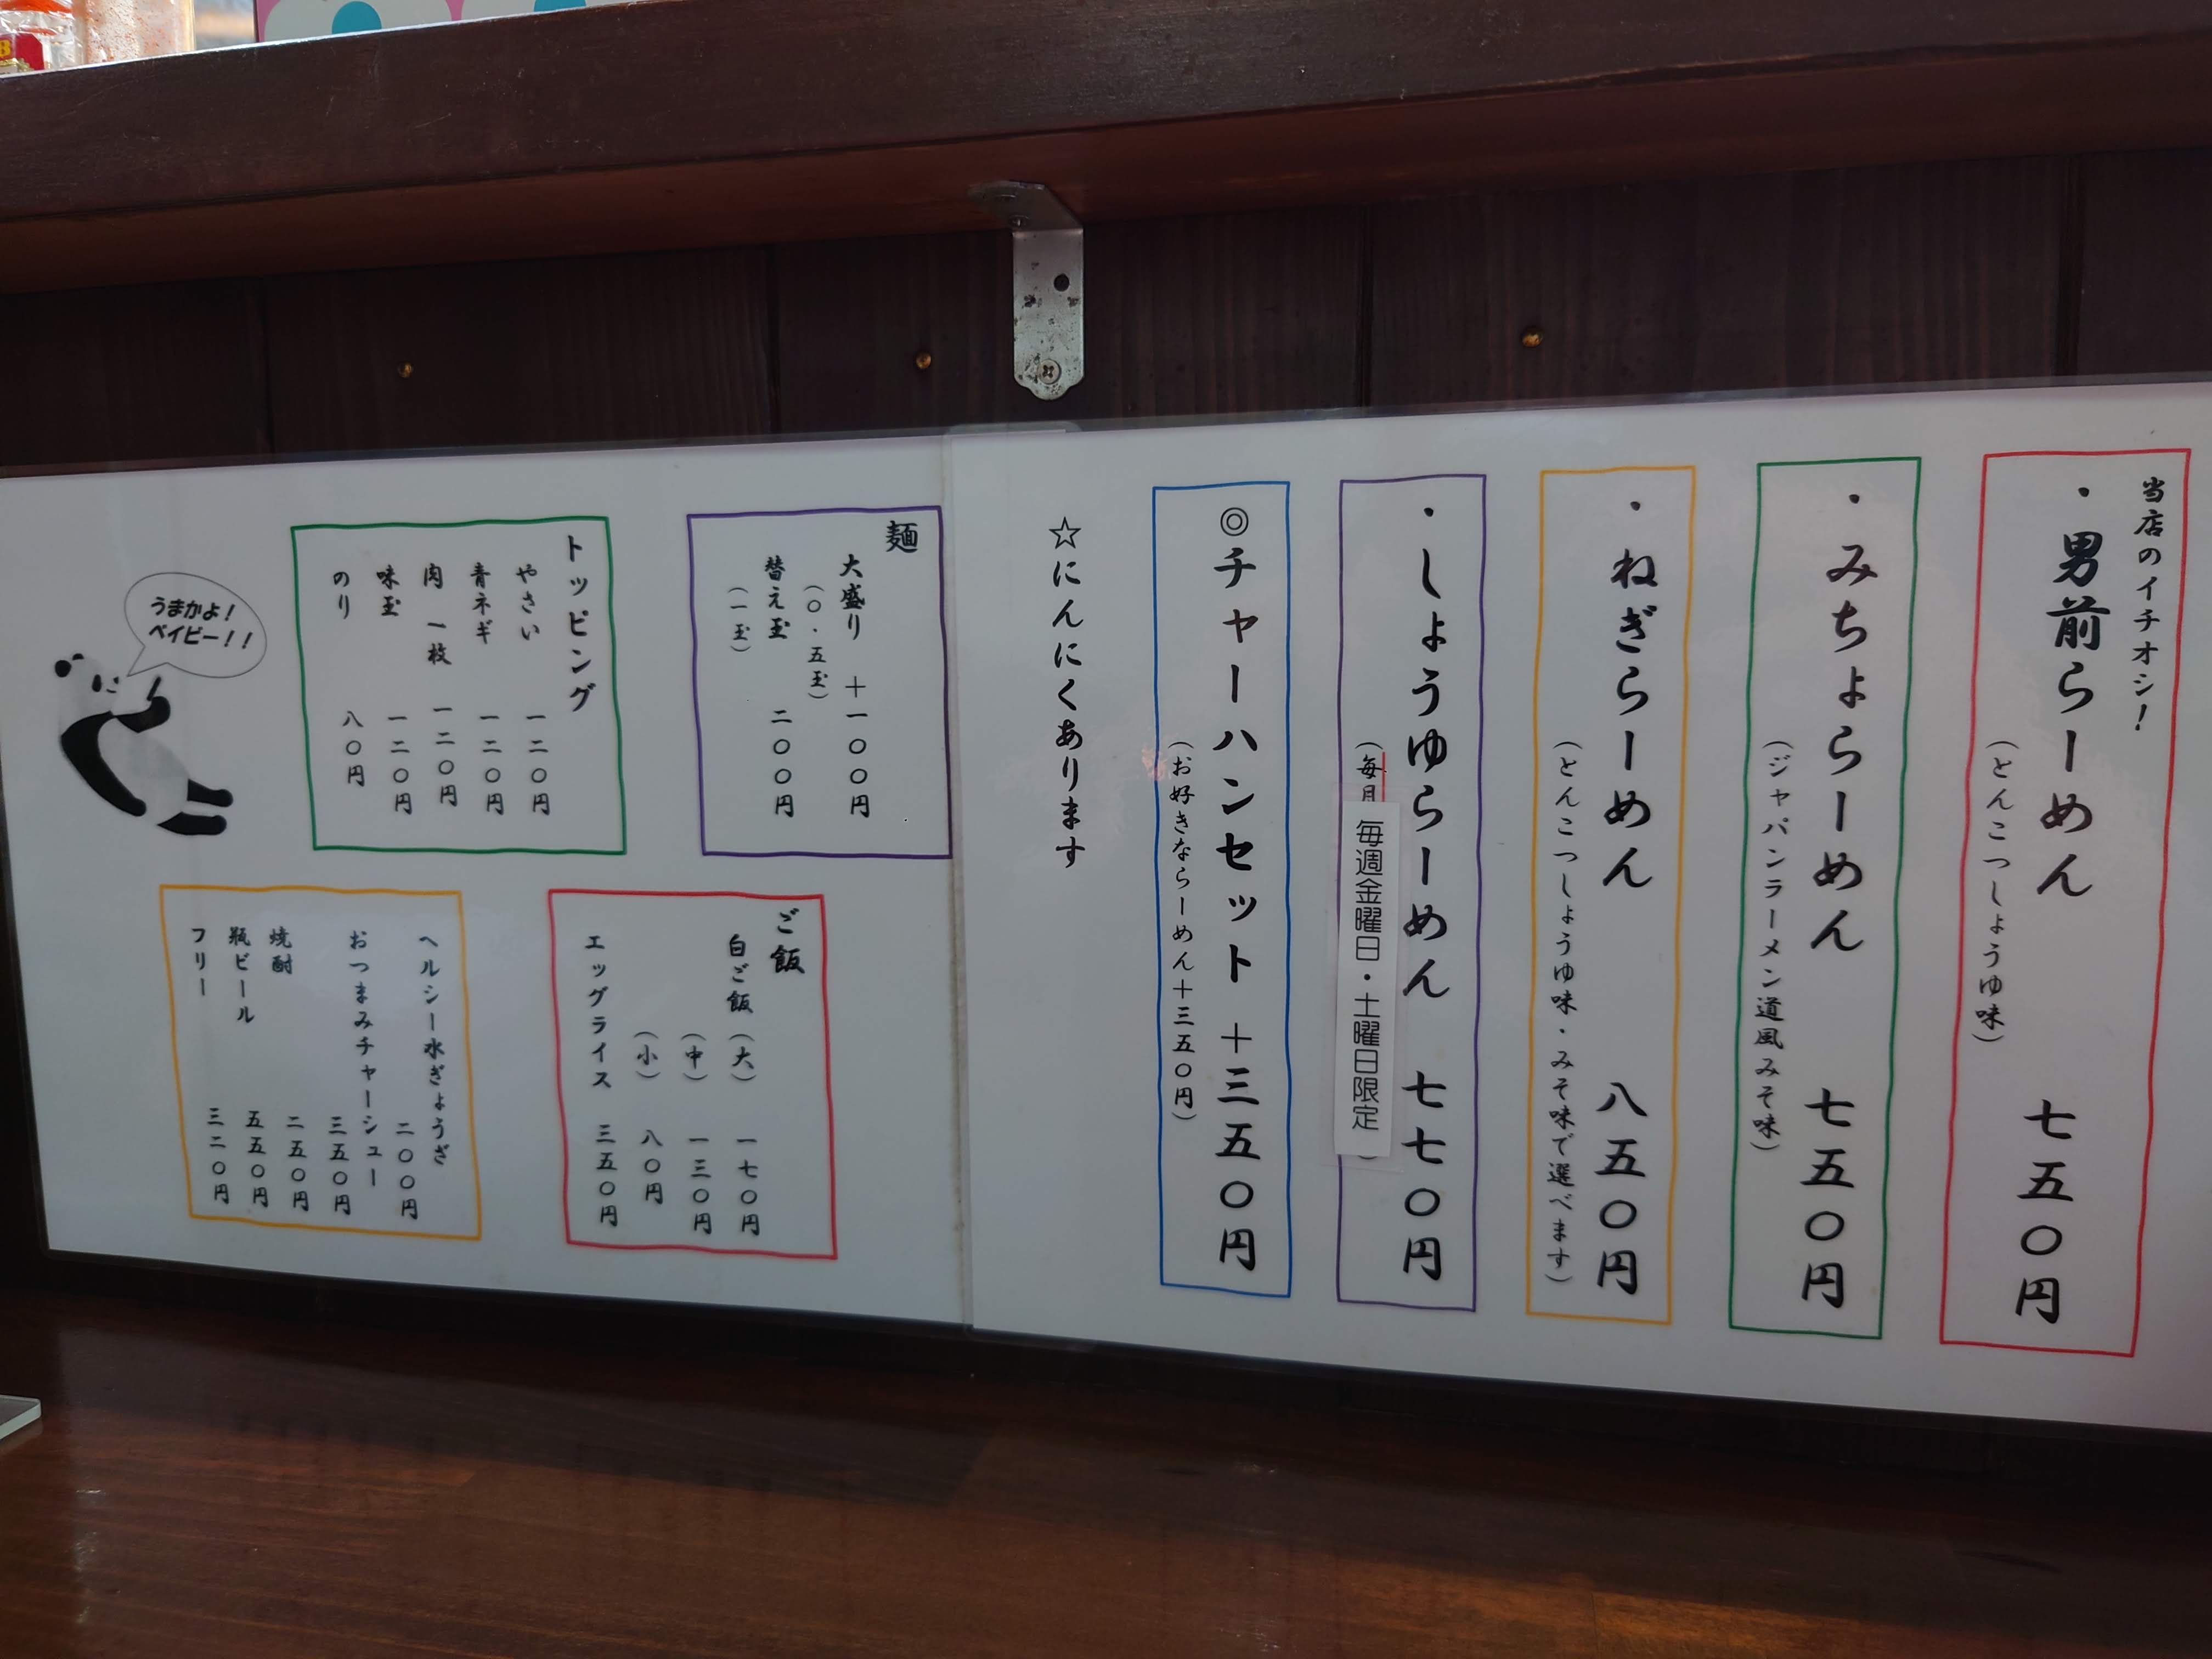 当店のイチオシ！
・男前らーめん　七五〇円
（とんこつしょうゆ味）
・みちょらーめん　七五〇円
（ジャパンラーメン道風みそ味）
・ねぎらーめん　八五〇円
（とんこつしょうゆ味・みそ味で選べます）
・しょうゆらーめん　七七〇円
（毎月
毎週金曜日・土曜日限定
）
◎チャーハンセット　＋三五〇円
（お好きならーめん＋三五〇円）
☆にんにくあります
麺
大盛り　＋一〇〇円
（〇・五玉）
替え玉　二〇〇円
（一玉）
トッピング
やさい　一二〇円
青ネギ　一二〇円
肉一枚　一二〇円
味玉　一二〇円
のり　八〇円
うまかよ！
ベイビー！！
ご飯
白ご飯（大）　一七〇円
（中）　一三〇円
（小）　八〇円
エッグライス　三五〇円
ヘルシー水ぎょうざ
二〇〇円
おつまみチャーシュー
三五〇円
焼酎　二五〇円
瓶ビール　五五〇円
フリー　三二〇円